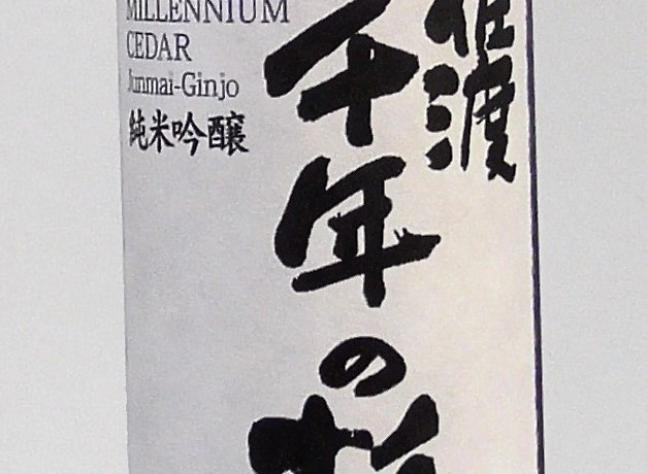 MILLENNIUM
CEDAR
Junmai-Ginjo
純米吟醸
佐渡
千年の杉